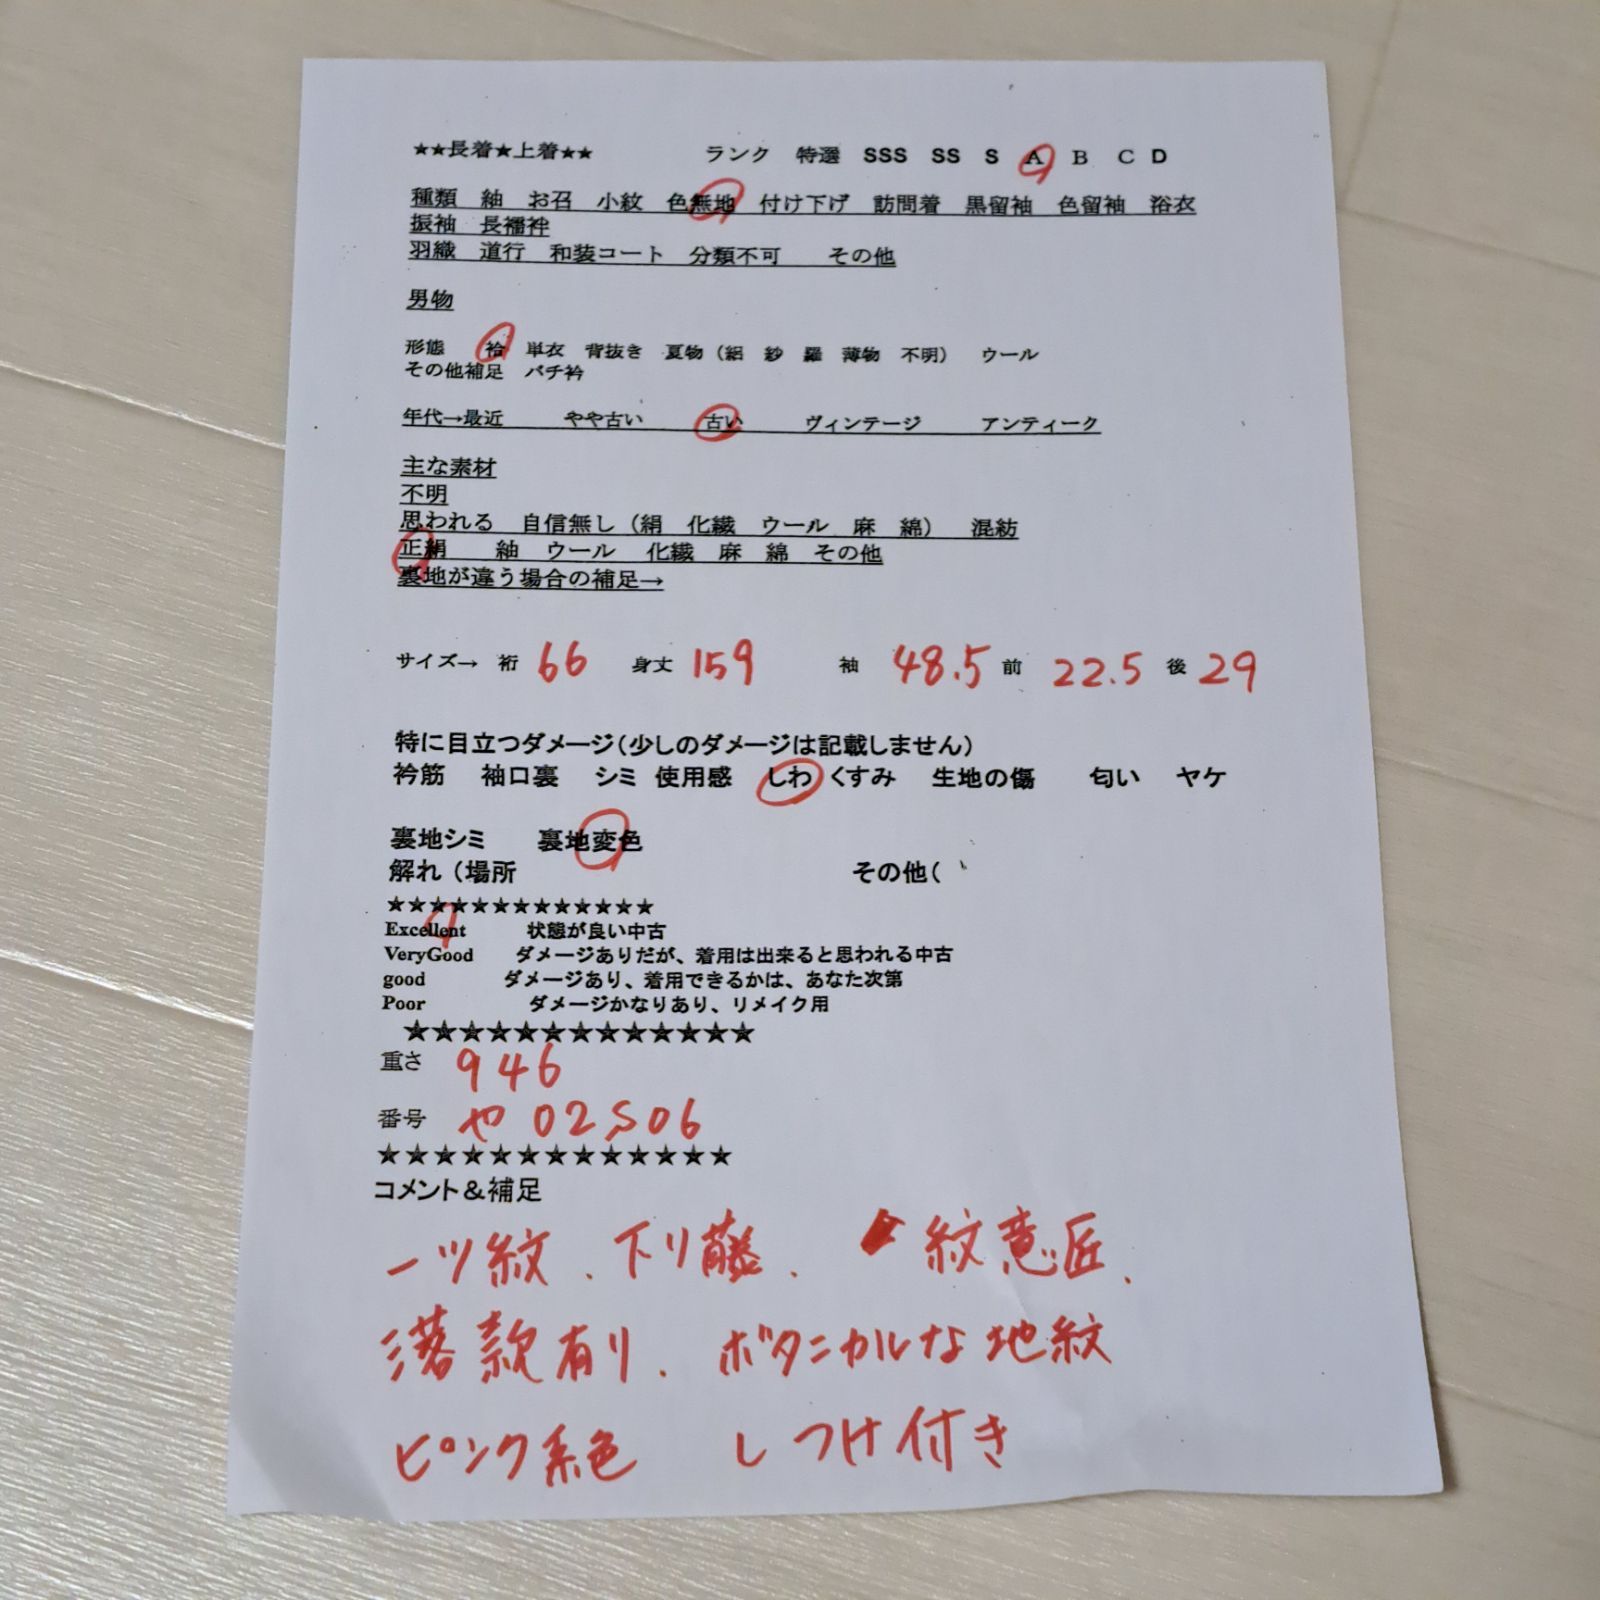 ★★長着★上着★★ ランク 特選 SSS SS S A B C D
種類 紬 お召 小紋 色無地 付け下げ 訪問着 黒留袖 色留袖 浴衣
振袖 長襦袢
羽織 道行 和装コート 分類不可 その他
男物
形態 袷 単衣 背抜き 夏物（絽 紗 羅 薄物 不明） ウール
その他補足 バチ衿
年代→最近 やや古い 古い ヴィンテージ アンティーク
主な素材
不明
思われる 自信無し（絹 化繊 ウール 麻 綿） 混紡
正絹 紬 ウール 化繊 麻 綿 その他
裏地が違う場合の補足→
サイズ→ 裄 66 身丈 159 袖 48.5 前 22.5 後 29
特に目立つダメージ（少しのダメージは記載しません）
衿筋 袖口裏 シミ 使用感 しわ くすみ 生地の傷 匂い ヤケ
裏地シミ 裏地変色
解れ（場所 その他（
★★★★★★★★★★★★★
Excellent 状態が良い中古
VeryGood ダメージありだが、着用は出来ると思われる中古
good ダメージあり、着用できるかは、あなた次第
Poor ダメージかなりあり、リメイク用
★★★★★★★★★★★★★
重さ 946
番号 や02506
★★★★★★★★★★★★★
コメント＆補足
一ツ紋、下り藤、紋意匠、
落款有り、ボタニカルな地紋
ピンク系色 しつけ付き